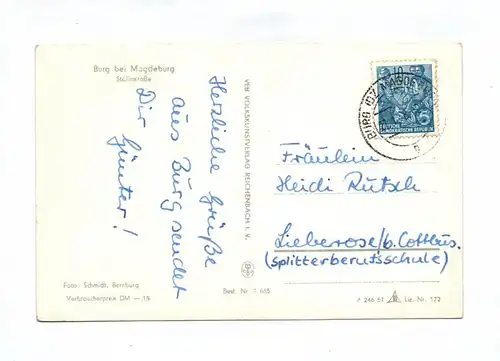 Burg bei Magdeburg
Stalinstraße
Herzliche Grüße
aus Burg sendet
Dir
Günter!
Foto: Schmidt, Bernburg
Verbraucherpreis DM —.15
VEB VOLKSKUNSTVERLAG REICHENBACH I. V.
Best. Nr. 1 655
BURG (BZ MAGDE
10
DEUTSCHE
DEMOKRATISCHE REPUBLIK
Fräulein
Heidi Rutsch
Lieberose/b. Cottbus.
(Splitterberufsschule)
246 57
Liz.-Nr. 172